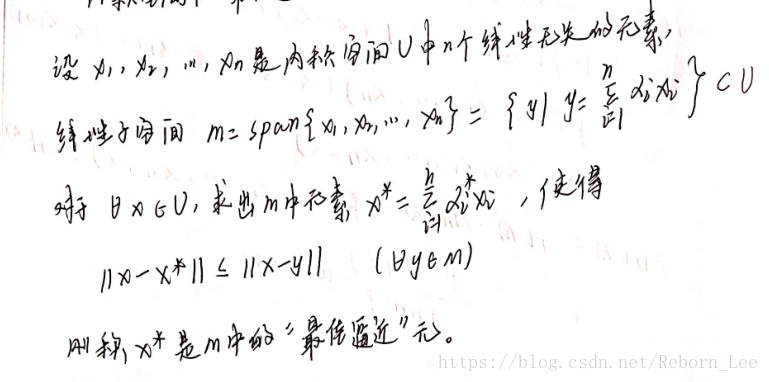 设 x₁, x₂, …, xₙ 是内积空间 U 中 n 个线性无关的元素,
线性子空间 M = span{x₁, x₂, …, xₙ} = {y| y = ∑ᵢ₌₁ⁿ αᵢxᵢ} ⊂ U
对于 ∀x∈U, 求出 M 中元素 x* = ∑ᵢ₌₁ⁿ αᵢ*xᵢ , 使得
||x-x*|| ≤ ||x-y|| (∀y∈M)
则称 x* 是 M 中的“最佳逼近”元。
https://blog.csdn.net/Reborn_Lee